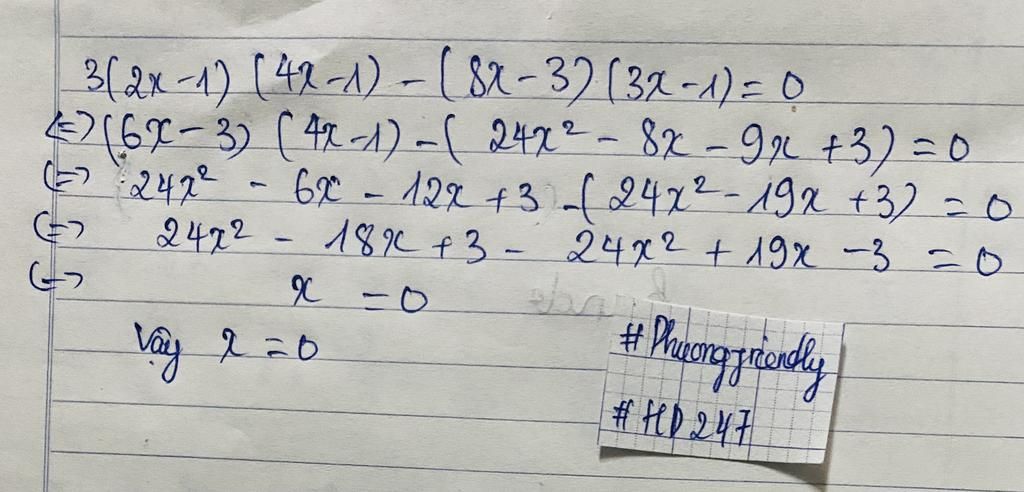 3(2x-1) (4x-1) - (8x-3) (3x-1) = 0
<=> (6x-3) (4x-1) - ( 24x² - 8x - 9x +3) = 0
<=> 24x² - 6x - 12x +3 - ( 24x² - 19x +3) = 0
<=> 24x² - 18x + 3 - 24x² + 19x -3 = 0
<=> x = 0
Vậy x = 0
# Phuongfriendly
# HD 247